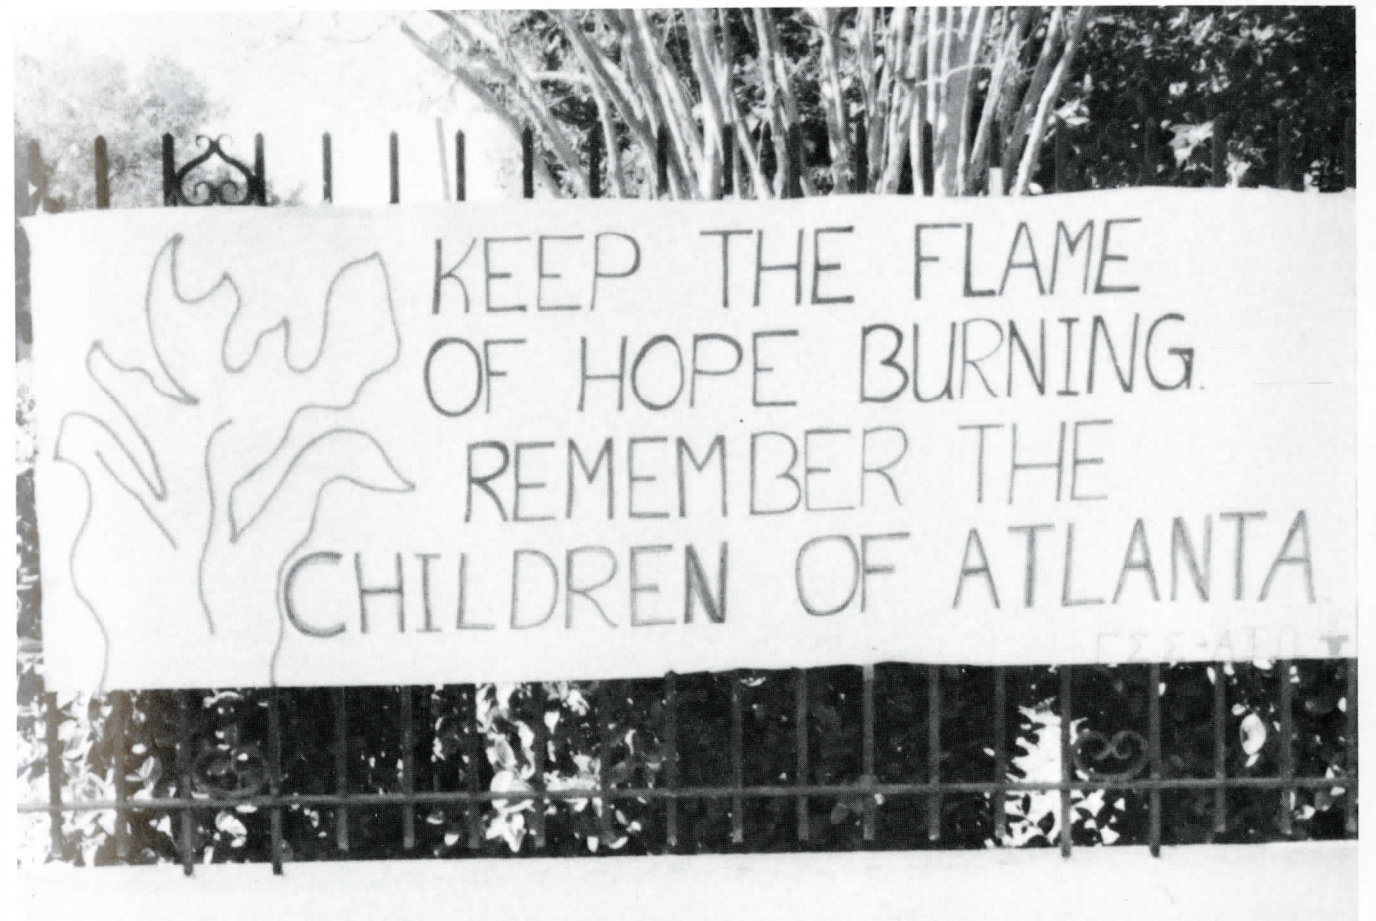 KEEP THE FLAME
OF HOPE BURNING.
REMEMBER THE
CHILDREN OF ATLANTA.